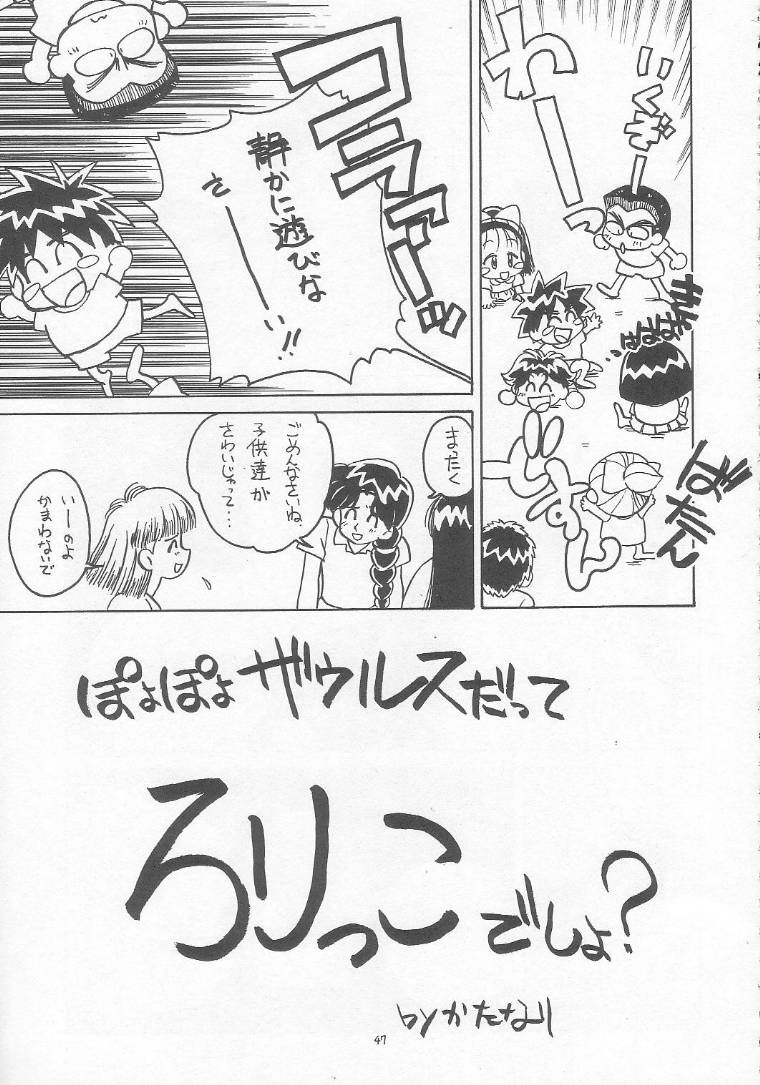 いくぞー
わーーっ
どすん
ばたん
コラァーー!!
静かに遊びな
さーーい!!
まったく
ごめんなさいね、
子供達が
さわいじゃって…
いーのよ
かまわないで
ぽよぽよザウルスだって
ろりっこでしょ?
byかたなり
47